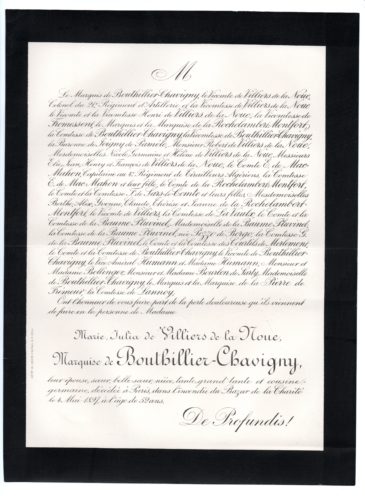 M
Le Marquis de Bouthillier-Chavigny, le Vicomte de Villiers de la Noue,
Colonel du 21e Régiment d'Artillerie et la Vicomtesse de Villiers de la Noue,
le Vicomte et la Vicomtesse Henri de Villiers de la Noue, la Vicomtesse de
le Marquis et la Marquise de la Rochelambert Montfort,
la Comtesse de Bouthillier-Chavigny, la Vicomtesse de Bouthillier-Chavigny,
la Baronne de Monsieur Robert de Villiers de la Noue,
Mesdemoiselles Germaine et Hélène de Villiers de la Noue, Messieurs
Elie, Jean, Henry et François de Villiers de la Noue, le Comte E. de Mac-
Mahon, Capitaine au Régiment de Tirailleurs Algériens, la Comtesse
E. de Mac-Mahon et leur fille, le Comte de la Rochelambert Montfort,
le Comte et la Comtesse et leurs filles, Mesdemoiselles
Berthe, Alix, Yvonne, Claude, et Jeanne de la Rochelambert-
Montfort, le Vicomte de Villiers, la Comtesse de le Comte et la
Comtesse de la Baume Pluvinel, Mademoiselle de la Baume Pluvinel,
la Comtesse de la Baume Pluvinel, née la Comtesse G.
de la Baume Pluvinel, le Comte et la Comtesse des
le Comte et la Comtesse de Bouthillier-Chavigny, le Vicomte de Bouthillier-
Chavigny, le Vice-Amiral Humann et Madame Humann, Monsieur et
Madame Monsieur et Madame Mademoiselle
de Bouthillier-Chavigny, le Marquis et la Marquise de la Pierre de
la Comtesse de Lannoy,
Ont l'honneur de vous faire part de la perte douloureuse qu'ils viennent
de faire en la personne de Madame
Marie, Julia de Villiers de la Noue,
Marquise de Bouthillier-Chavigny,
leur épouse, sœur, belle-sœur, nièce, tante, grand'tante et cousine
germaine, décédée à Paris, dans l'incendie du Bazar de la Charité
le 4 Mai 1897, à l'âge de ans.
De Profundis!